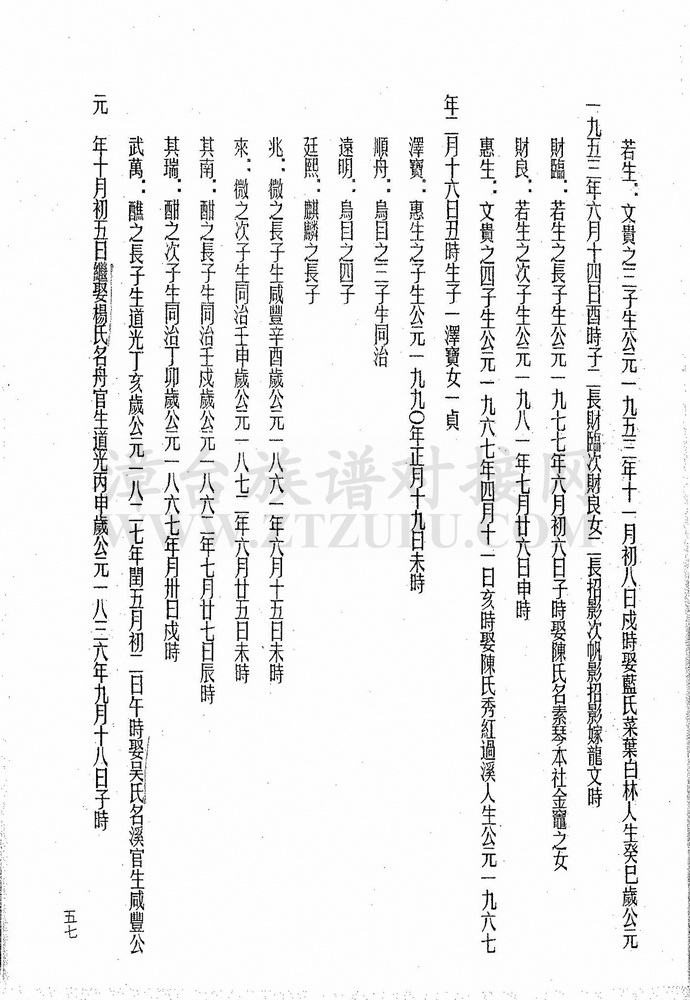 若生：文貴之三子生公元一九五三年十一月初八日戍時娶藍氏菜葉白林人生癸巳歲公元
一九五三年六月十四日酉時子二長財臨次財良女二長招影次帆影招影嫁龍文時
財臨：若生之長子生公元一九七七年六月初六日子時娶陳氏名素琴本社金竈之女
財良：若生之次子生公元一九八一年七月廿六日申時
惠生：文貴之四子生公元一九六七年四月十一日亥時娶陳氏秀紅過溪人生公元一九六七
年二月十六日丑時生子一澤寶女一貞
澤寶：惠生之子生公元一九九〇年正月十九日未時
順舟：烏目之三子生同治
遠明：烏目之四子
廷熙：麒麟之長子
兆：微之長子生咸豐辛酉歲公元一八六一年六月十五日未時
來：微之次子生同治壬申歲公元一八七二年六月廿五日未時
其南：酣之長子生同治壬戍歲公元一八六二年七月廿七日辰時
其瑞：酣之次子生同治丁卯歲公元一八六七年月卅日戍時
武萬：醮之長子生道光丁亥歲公元一八二七年閏五月初二日午時娶吴氏名溪官生咸豐公
元 年十月初五日繼娶楊氏名舟官生道光丙申歲公元一八三六年九月十八日子時
五七
漳台族谱对接网
WWW.ZTZUPU.COM